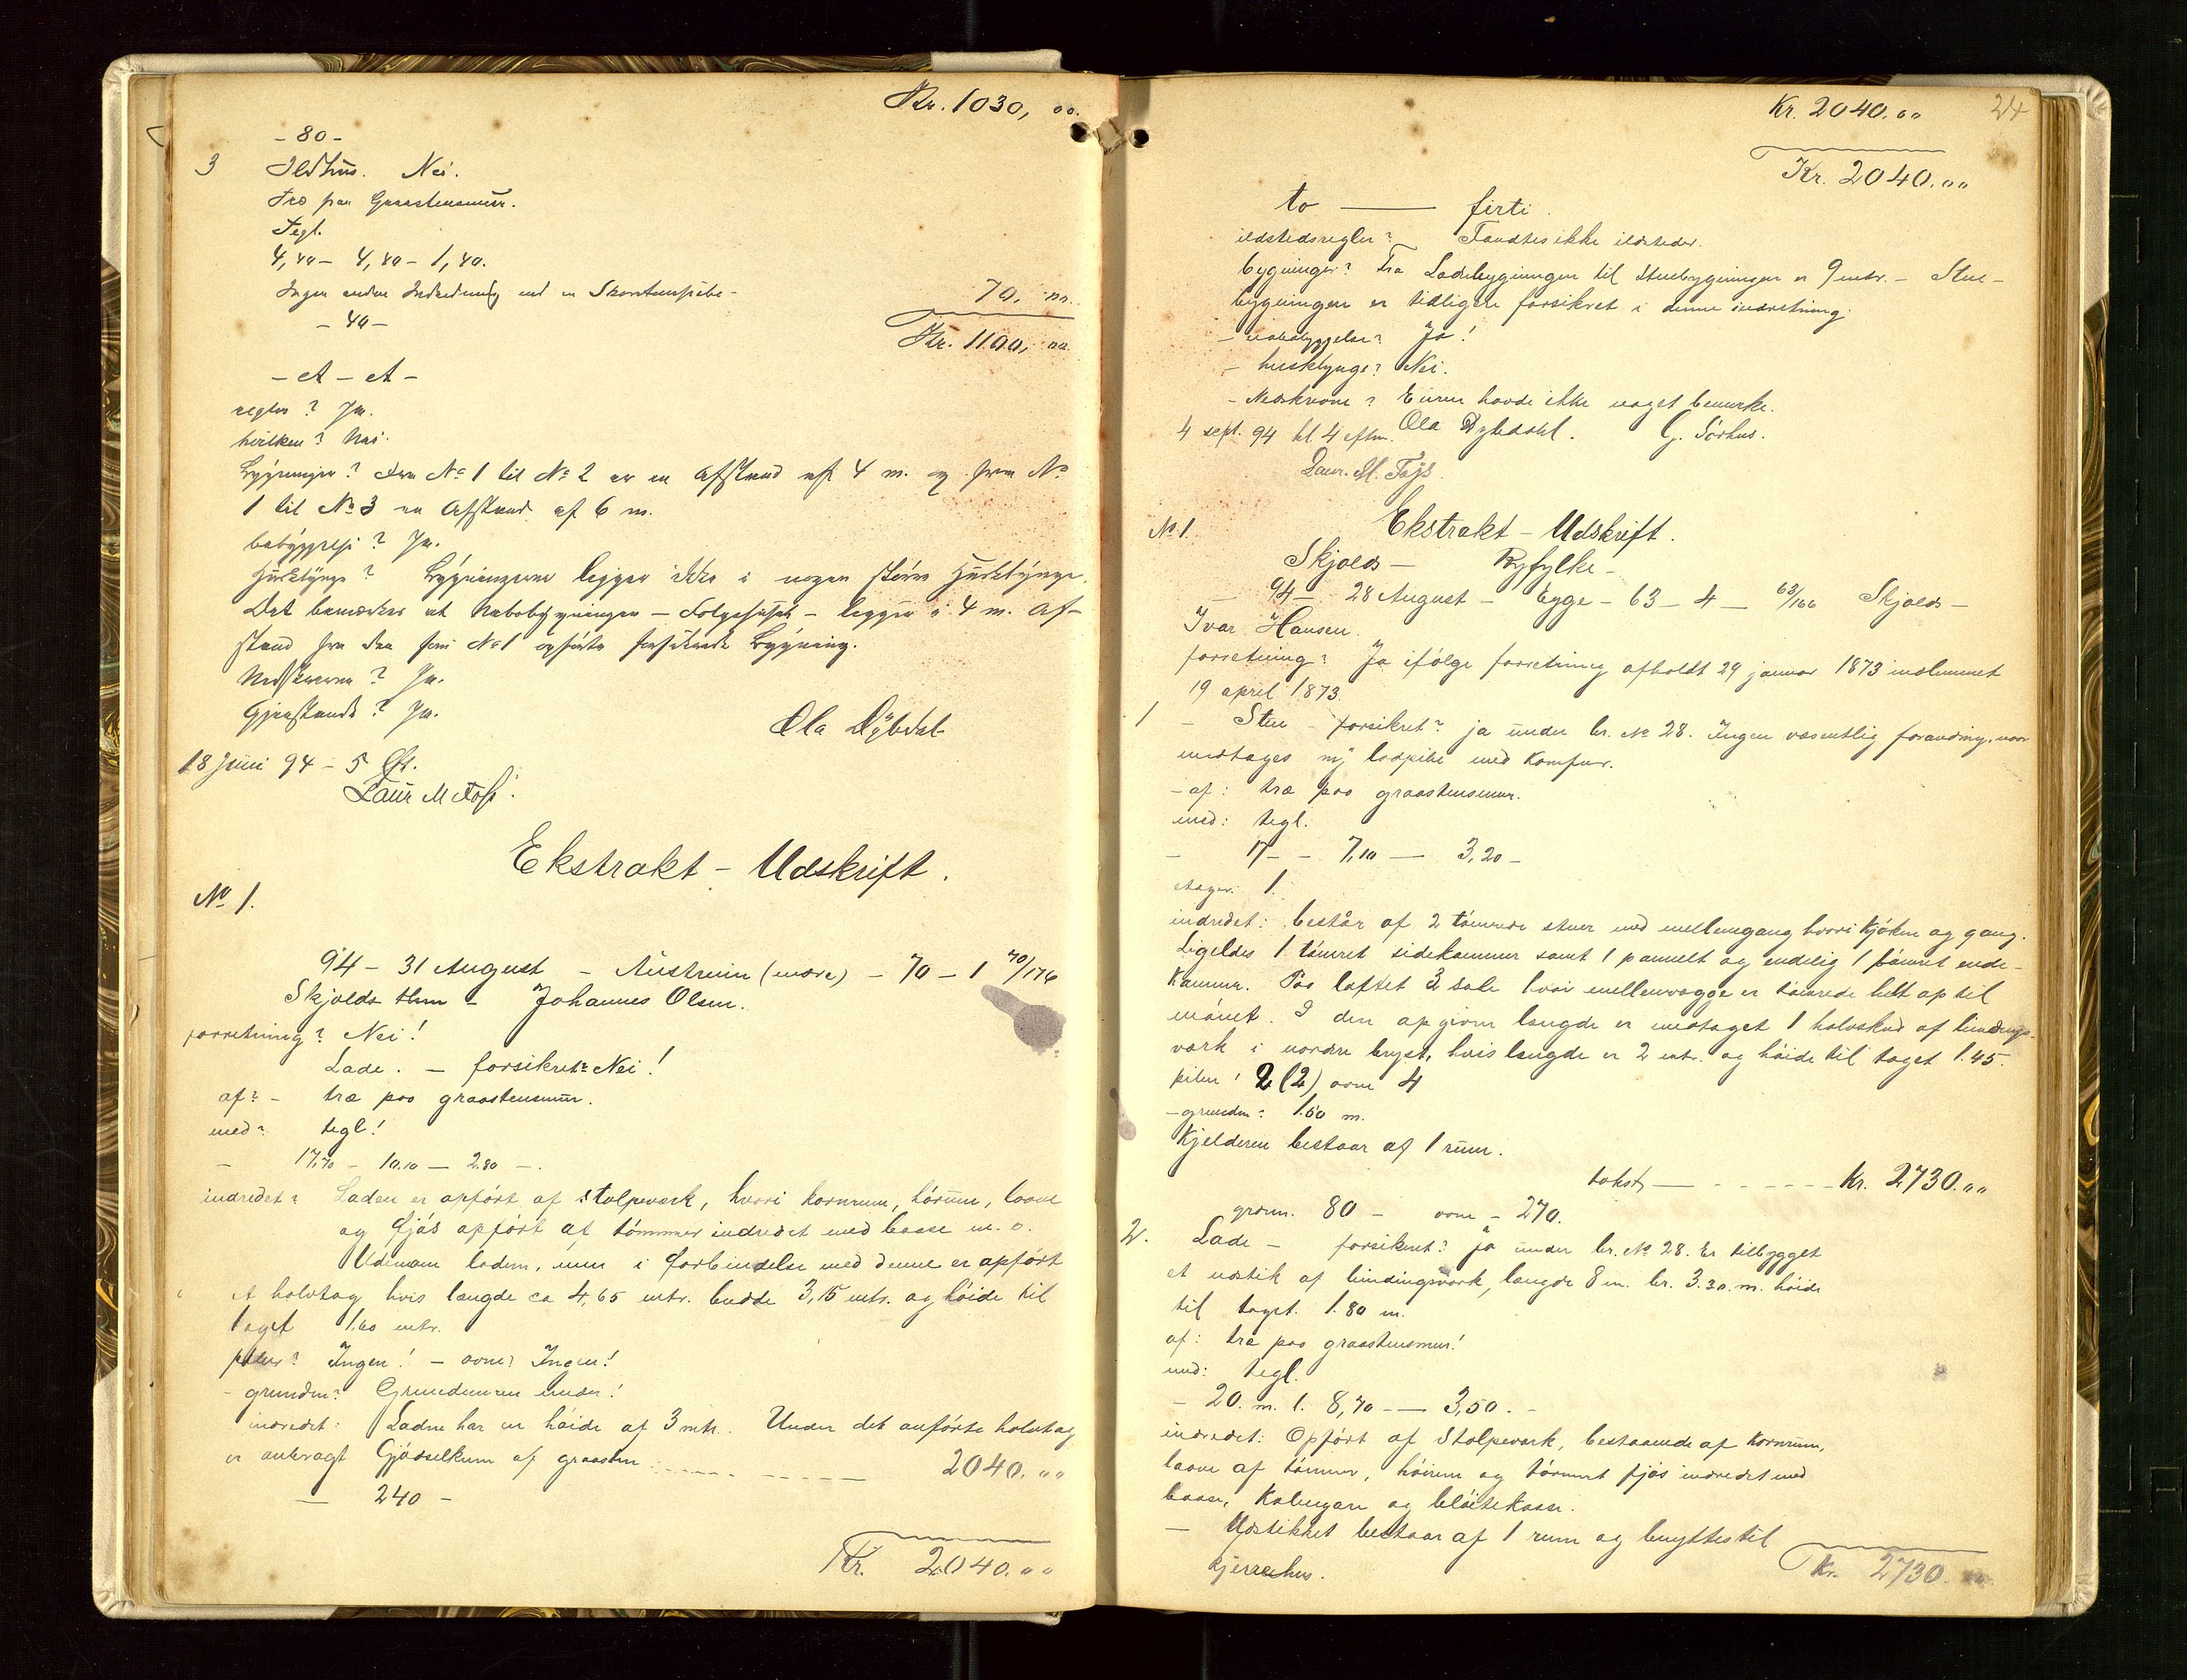 Kr. 1030, 00.
- 80 -
3 Ildhus. Nei.
Træ paa Graastensmur.
Tegl.
4,40 - 4,40 - 1,40.
Ingen anden Indredning end en Skorstenspibe - 70, 00.
- 40 -
Kr. 1100, 00.
- et - et -
regler? Ja.
hvilken? Nei.
Bygninger? Fra No 1 til No 2 er en Afstand af 4 m. og fra No
1 til No 3 en Afstand af 6 m.
bebyggelse? Ja.
Husklynge? Bygningerne ligger ikke i nogen større Husklynge.
Det bemerkes at Nabobygningen - Folgehuset - ligger i 4 m. Af-
stand fra den som No 1 opførte forsikrede Bygning.
Nedskreven? Ja.
Gjenstande? Ja.
Ola Dybdal
18 Juni 94 - 5 Eft.
Laur M Fos
Ekstrakt - Udskrift.
No 1.
94 - 31 August - Austreim (nedre) - 70 - 1 70/176
Skjolds thm - Johannes Olsen.
forretning? Nei!
Lade. - forsikret? Nei!
af? - træ paa graastensmur.
med? tegl!
- 17.70 - 10.10 - 2.80 -.
indredet? Laden er opført af stolpeverk, hvori kornrum, hörum, loave
og fjøs opført af tömmer indredet med baase m. v.
Udenom laden, men i forbindelse med denne er opført
et halvtag hvis længde ca 4,65 mtr. bredde 3,15 mtr. og høide til
taget 1.60 mtr.
piber? Ingen! - ovne? Ingen!
- grunden? Grundmuren under!
indredet: Laden har en høide af 3 mtr. Under det anførte halvtag
er anbragt Gjødselkum af graasten 2040. 00
- 240 -
Kr. 2040. 00
24
Kr. 2040. 00
Kr. 2040. 00
to — firti.
ildstedsregler? Fandtes ikke ildsteder.
bygninger? Fra Ladebygningen til Stuebygningen er 9 mtr. - Stue-
bygningen er tidligere forsikret i denne indretning.
- nabobyggelse? Ja!
- husklynge? Nei.
- Nedskreven? Eieren havde ikke noget bemerke.
4 sept. 94 kl. 4 eftm. Ola Dybdahl. G. Sörhus.
Laur. M. Fos
No 1. Ekstrakt - Udskrift.
Skjolds - Ryfylke -
- 94 - 28 August - Egge - 63 - 4 - 63/166 Skjolds -
Ivar Hansen.
forretning? Ja ifölge forretning afholdt 29 januar 1873 indlemmet
19 april 1873.
1 - Stue - forsikret? ja under br. No 28. Ingen væsentlig forandring, naar
undtages ny lospibe med Komfur.
- af: træ paa graastensmur.
med: tegl.
- 17 - - 7,10 - 3,20 -
etager: 1.
indredet: består af 2 tömrede stuer med mellemgang hvori kjöken og gang.
Ligeledes 1 tömret sidekammer samt 1 pannelt og endelig 1 tömret ende-
kammer. Paa loftet 3 sale hvor mellemvægge er tömrede helt op til
mönet. I den opgivne længde er medtaget 1 halvskud af bindings-
værk i nordre bryst, hvis længde er 2 mtr. og höide til taget 1.45.
piber: 2 (2) ovne 4
- grunden: 1.60 m.
Kjelderen bestaar af 1 rum.
takst, — Kr. 2730. 00
grunn. 80 - ovne - 270.
2. Lade - forsikret? ja under br. No 28. Er tilbygget
et udstik af bindingsværk, længde 8 m. br. 3.30. m. höide
til taget. 1.80 m.
af: træ paa graastensmur!
med: tegl.
- 20. m. l. 8,70 - - 3,50. -
indredet: Opført af Stolpeverk, bestaaende af Kornrum,
laave af tömmer, höirum og tömret fjös indredet med
baase, Kalvegarr og blöitekasse.
- Udstikket bestaar af 1 rum og benyttes til
kjerrehus. Kr. 2730. 00